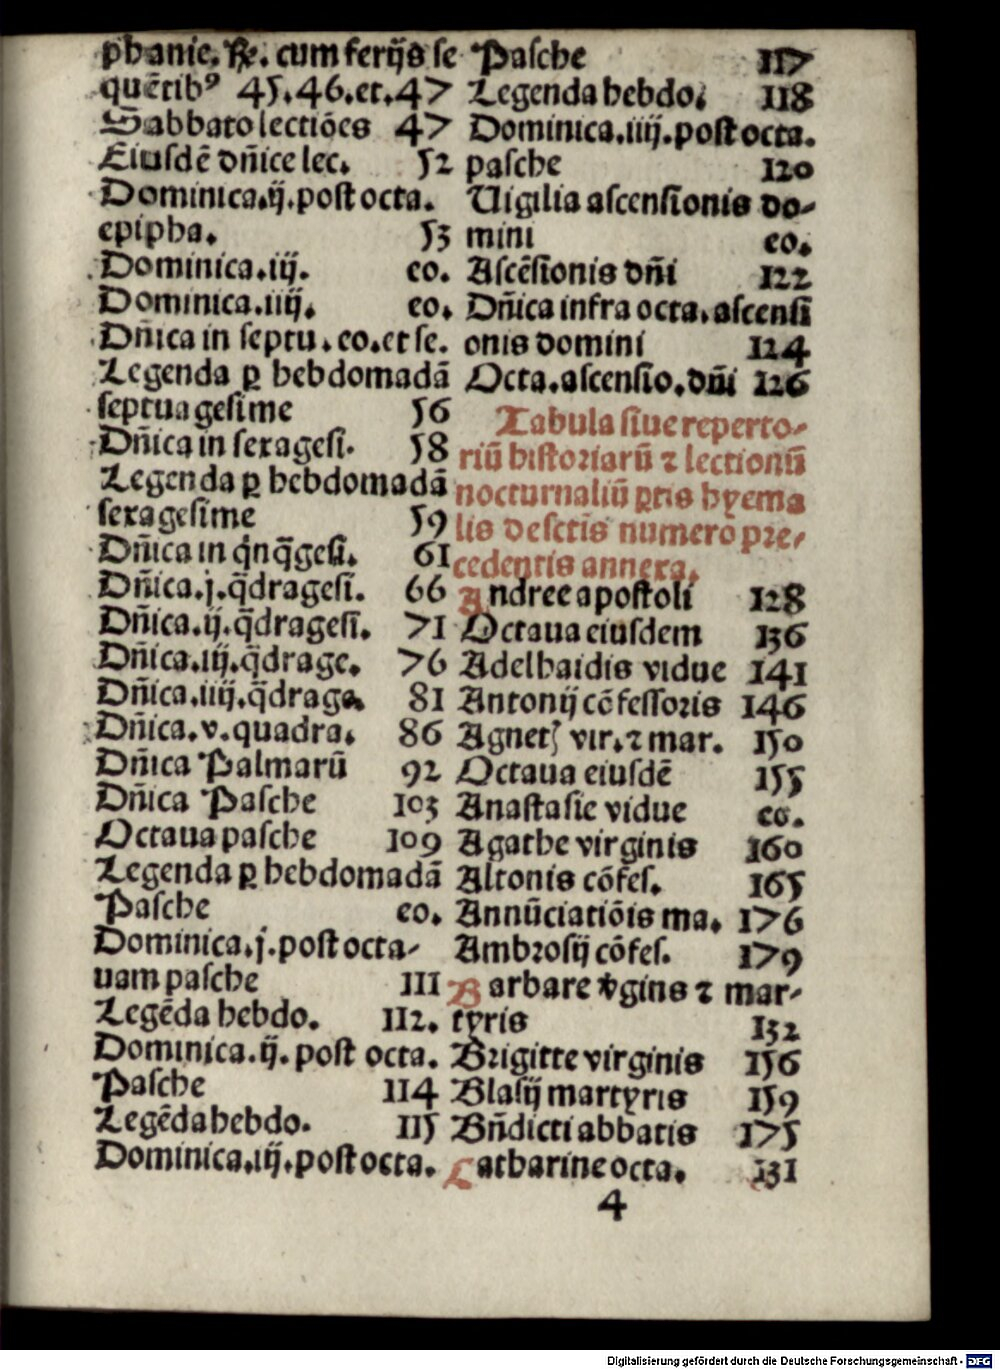 phanie. ꝶc. cum ferijs se
quētibꝰ 45.46.et.47
Sabbato lectiōes 47
Eiusdē dn̄ice lec. 52
Dominica.ij.post octa.
epipha. 53
Dominica.iij. eo.
Dominica.iiij. eo.
Dn̄ica in septu.eo.et se.
Legenda ꝑ hebdomadā
septuagesime 56
Dn̄ica in sexagesi. 58
Legenda ꝑ hebdomadā
sexagesime 59
Dn̄ica in q̇nq̄gesi. 61
Dn̄ica.j.q̄dragesi. 66
Dn̄ica.ij.q̄dragesi. 71
Dn̄ica.iij.q̄drage. 76
Dn̄ica.iiij.q̄drage. 81
Dn̄ica.v.quadra. 86
Dn̄ica Palmarū 92
Dn̄ica Pasche 103
Octaua pasche 109
Legenda ꝑ hebdomadā
Pasche eo.
Dominica.j.post octa-
uam pasche 111
Legēda hebdo. 112.
Dominica.ij.post octa.
Pasche 114
Legēda hebdo. 115
Dominica.iij.post octa.
Pasche 117
Legenda hebdo. 118
Dominica.iiij.post octa.
pasche 120
Uigilia ascensionis do-
mini eo.
Ascēsionis dn̄i 122
Dn̄ica infra octa.ascensi
onis domini 124
Octa.ascensio.dn̄i 126
Tabula siue reperto-
riū historiarū ⁊ lectionū
nocturnaliū ꝑtis hyema
lis de sctīs numero pre-
cedentis annexa.
Andree apostoli 128
Octaua eiusdem 136
Adelhaidis vidue 141
Antonij cōfessoris 146
Agnetꝭ vir.⁊ mar. 150
Octaua eiusdē 155
Anastasie vidue eo.
Agathe virginis 160
Altonis cōfes. 165
Annūciatiōis ma. 176
Ambrosij cōfes. 179
Barbare v̄gins ⁊ mar-
tyris 132
Brigitte virginis 156
Blasij martyris 159
Bn̄dicti abbatis 175
Catharine octa. 131
4
Digitalisierung gefördert durch die Deutsche Forschungsgemeinschaft - DFG